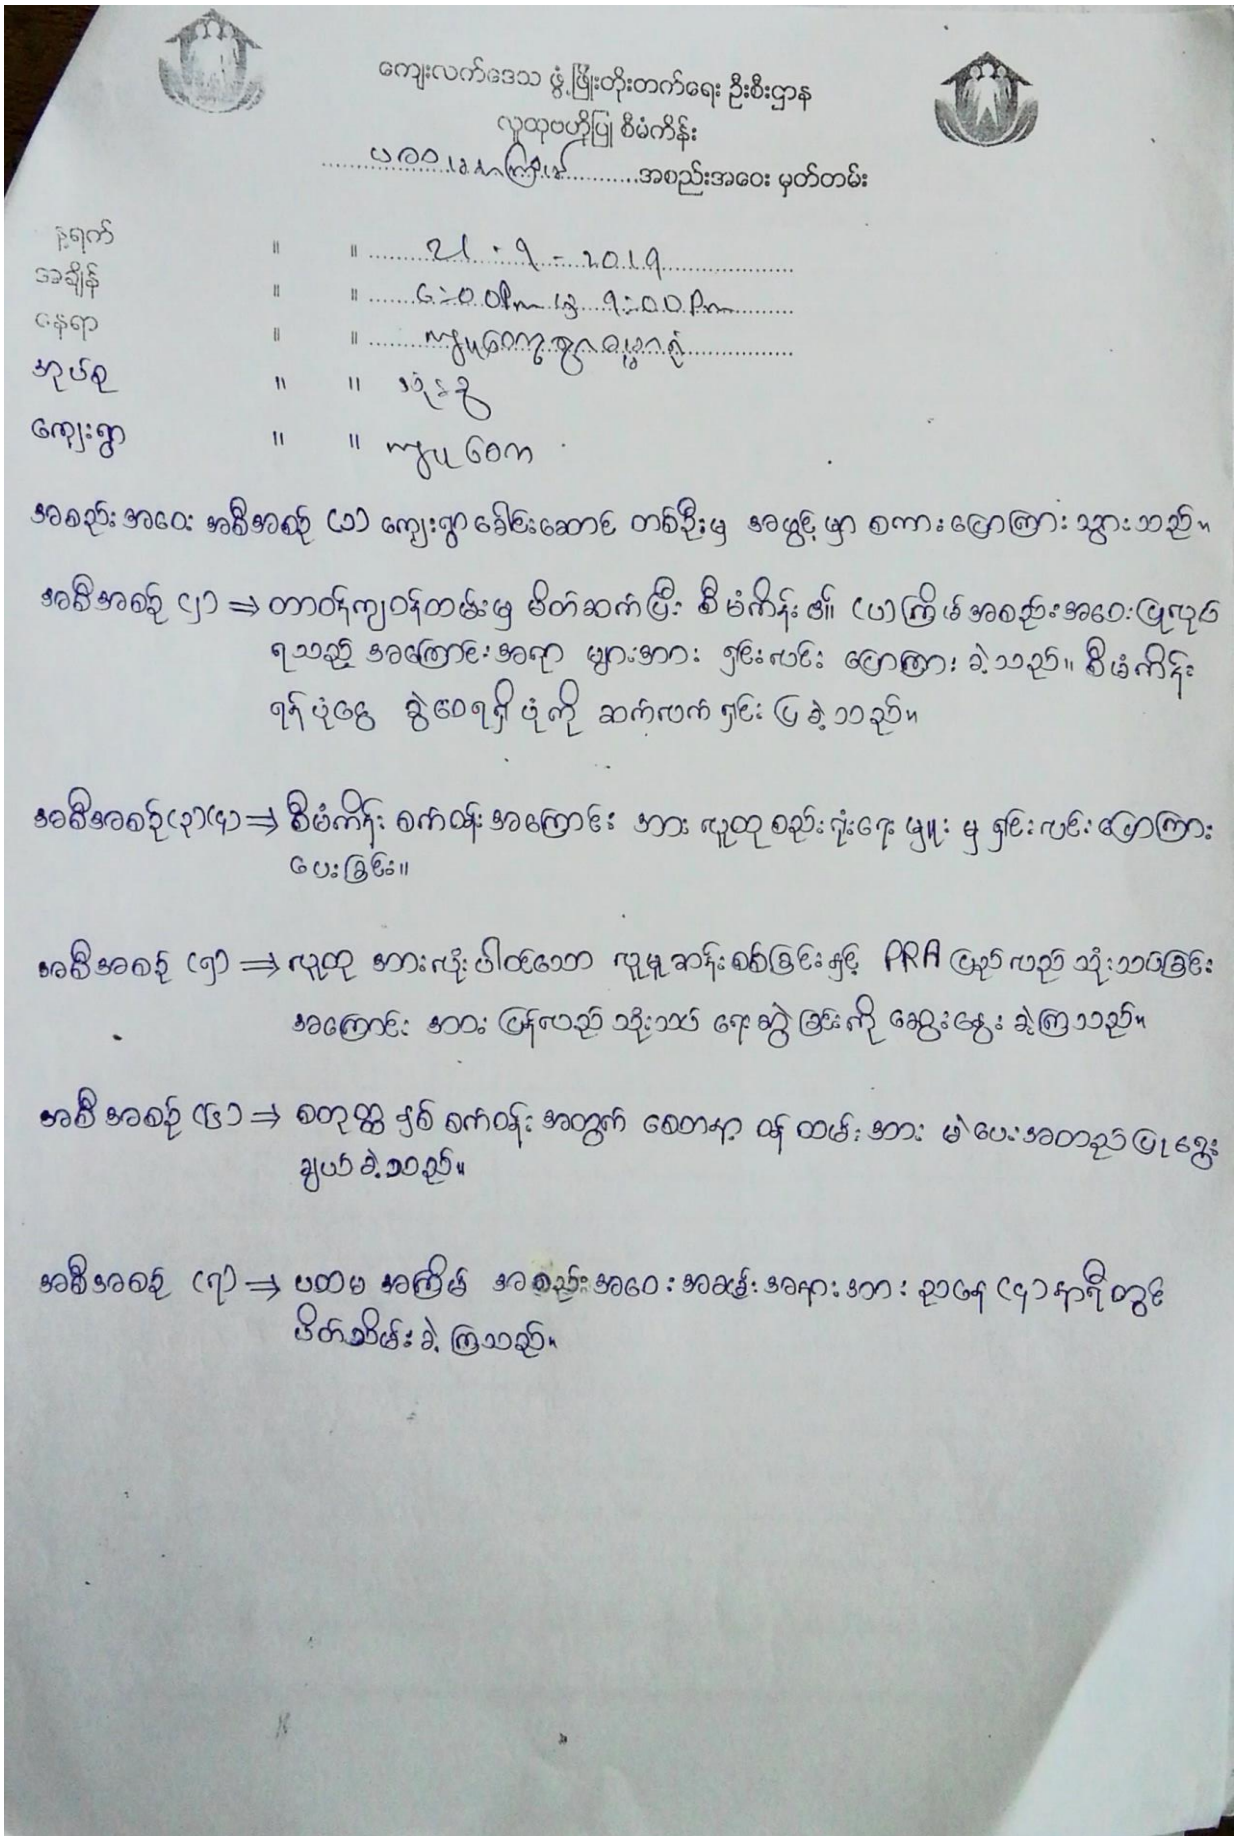 ကျေးလက်ဒေသ ဖွံ့ဖြိုးတိုးတက်ရေး ဦးစီးဌာန
လူထုဗဟိုပြု စီမံကိန်း
ပထမအကြိမ် အစည်းအဝေး မှတ်တမ်း
နေ့ရက် " " 21-9-2019
အချိန် " " 6:00Pm မှ 9:00Pm
နေရာ " "
အုပ်စု " "
ကျေးရွာ " "
အစည်းအဝေး အစီအစဉ် (၁) ကျေးရွာ ခေါင်းဆောင် တစ်ဦးမှ အဖွင့် မှာ စကား ပြောကြား သွားသည်။
အစီအစဉ် (၂) ⇒ တာဝန်ကျဝန်ထမ်းမှ မိတ်ဆက်ပြီး စီမံကိန်း၏ (ပ)ကြိမ် အစည်းအဝေး ပြုလုပ်
ရသည့် အကြောင်းအရာ များအား ရှင်းလင်း ပြောကြား ခဲ့သည်။ စီမံကိန်း
ရန်ပုံငွေ ခွဲဝေရရှိပုံကို ဆက်လက် ရှင်းပြခဲ့သည်။
အစီအစဉ်(၃)(၄) ⇒ စီမံကိန်း စက်ဝန်း အကြောင်း အား လူထု စည်းရုံးရေး မှူး မှ ရှင်းလင်း ပြောကြား
ပေးခြင်း။
အစီအစဉ် (၅) ⇒ လူထု အားလုံးပါဝင်သော လူမှု ဆန်းစစ်ခြင်းနှင့် PRA ပြည်လည် သုံးသပ်ခြင်း
အကြောင်း အား ပြန်လည် သုံးသပ် ရေးဆွဲခြင်းကို ဆွေးနွေး ခဲ့ကြသည်။
အစီအစဉ် (၆) ⇒ စတုတ္ထ နှစ် စက်ဝန်း အတွက် စေတနာ့ ဝန်ထမ်း အား မဲပေးအတည်ပြု ရွေး
ချယ်ခဲ့သည်။
အစီအစဉ် (၇) ⇒ ပထမ အကြိမ် အစည်းအဝေး အခမ်းအနား အား ညနေ (၄) နာရီတွင်
ပိတ်သိမ်းခဲ့ကြသည်။